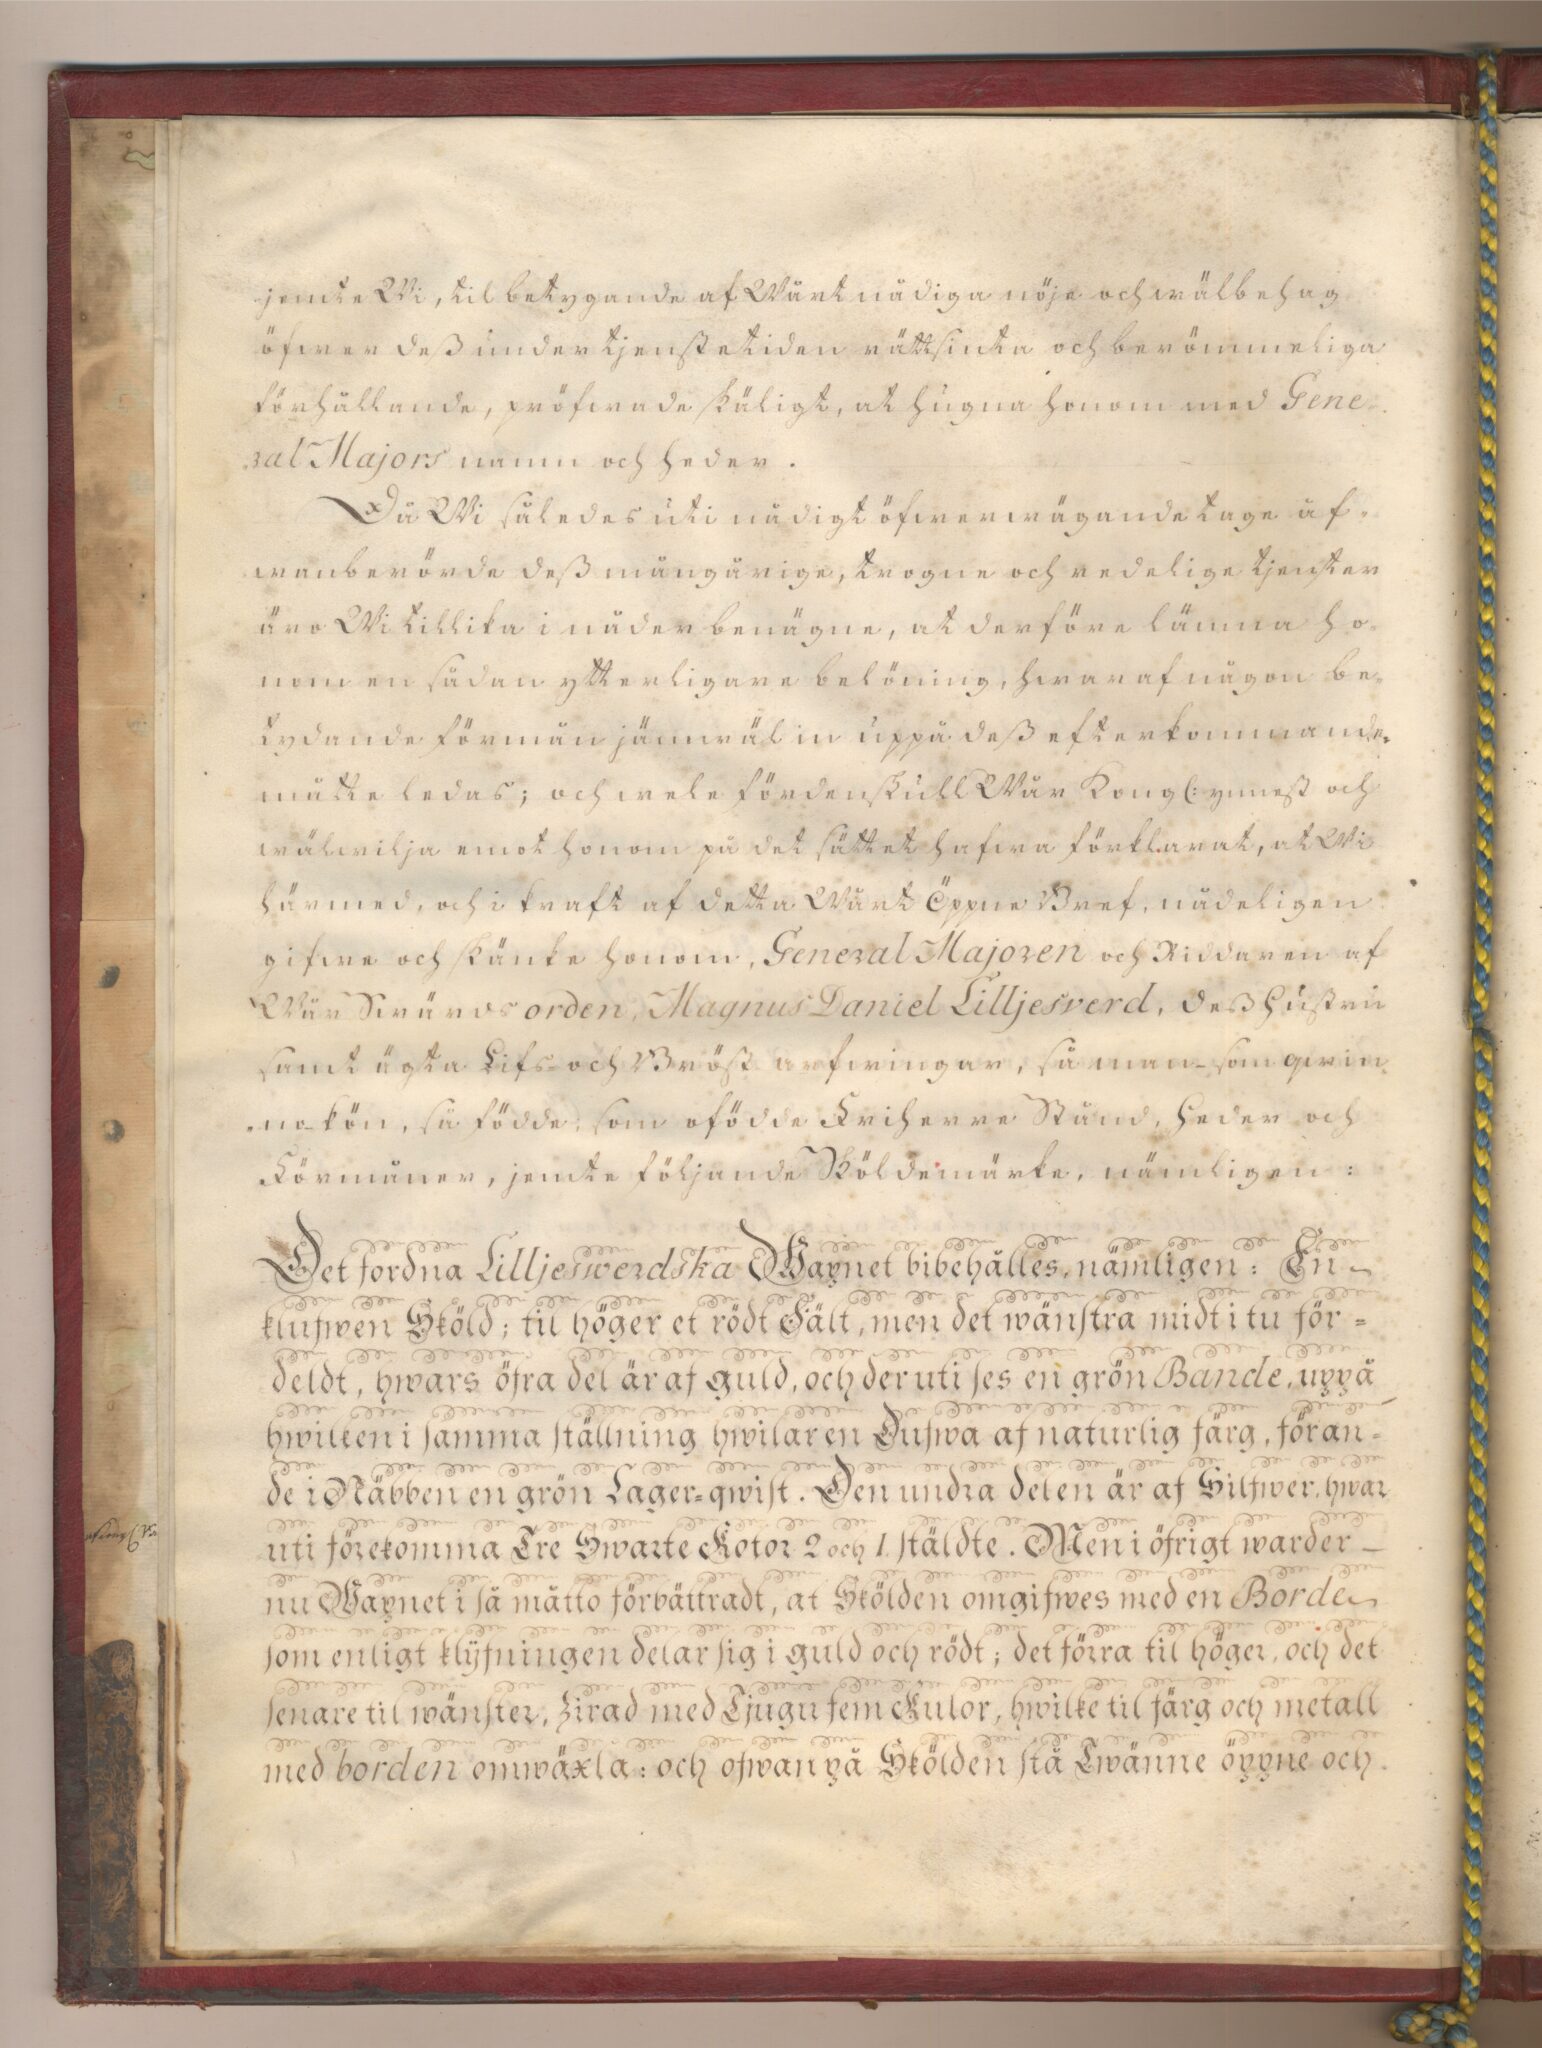 jemte Wi, til betygande af Wårt nådiga nöje och wälbehag
öfwer deß under tjenstetiden rättsinta och berömmeliga
förhållande, pröfwade skäligt, at hugna honom med Gene-
ral Majors namn och heder.
Då Wi således uti nådigt öfwerwägande tage äf-
wanberörde deß mångårige, trogne och redelige tjenster
äro Wi tillika i nåder benägne, at derföre lämna ho-
nom en sådan ytterligare belöning, hwaraf någon be-
tydande förmån jämwäl in uppå deß efterkommande
måtte ledas; och wele fördenskull Wår Kongl: ynnest och
wälwilja emot honom på det sättet hafwa förklarat, at Wi
härmed, och i kraft af detta Wårt Öppne Bref, nådeligen
gifwe och skänke honom, General Majoren och Riddaren af
Wår Swärds orden, Magnus Daniel Lilljesverd, deß Hustru
samt ägta Lifs- och Bröst arfwingar, så man- som qwin-
no-kön, så födde, som ofödde Friherre Stånd, heder och
Förmåner, jemte följande Sköldemärke, nämligen:
Det fordna Lilljeswerdska Wapnet bibehålles, nämligen: En
klufwen Sköld; til höger et rödt Fält, men det wänstra midt i tu för-
deldt, hwars öfra del är af guld, och der uti ses en grön Bande, uppå
hwilken i samma ställning hwilar en Dufwa af naturlig färg, föran-
de i Näbben en grön Lager-qwist. Den undra delen är af Silfwer, hwar
uti förekomma Tre Swarte Rotor 2 och 1. ställdte. Men i öfrigt warder
nu Wapnet i så måtto förbättradt, at Skölden omgifwes med en Borde
som enligt klyfningen delar sig i guld och rödt; det förra til höger, och det
senare til wänster, zirad med Tjugu fem Kulor, hwilke til färg och metall
med borden omwäxla: och ofwan på Skölden stå Twänne öppne och